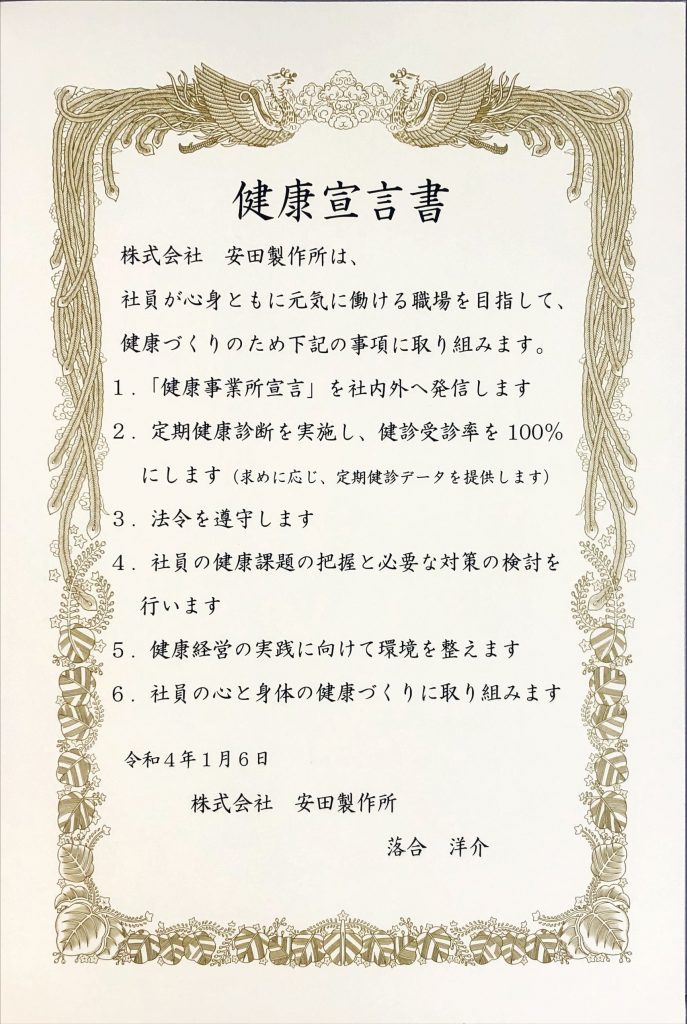 健康宣言書
株式会社　安田製作所は、
社員が心身ともに元気に働ける職場を目指して、
健康づくりのため下記の事項に取り組みます。
１．「健康事業所宣言」を社内外へ発信します
２．定期健康診断を実施し、健診受診率を 100％
にします（求めに応じ、定期健診データを提供します）
３．法令を遵守します
４．社員の健康課題の把握と必要な対策の検討を
行います
５．健康経営の実践に向けて環境を整えます
６．社員の心と身体の健康づくりに取り組みます
令和４年１月６日
株式会社　安田製作所
落合　洋介